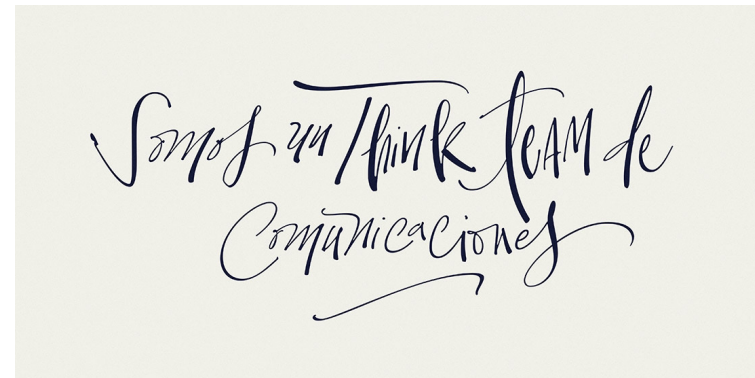 Somos un Think team de
Comunicaciones